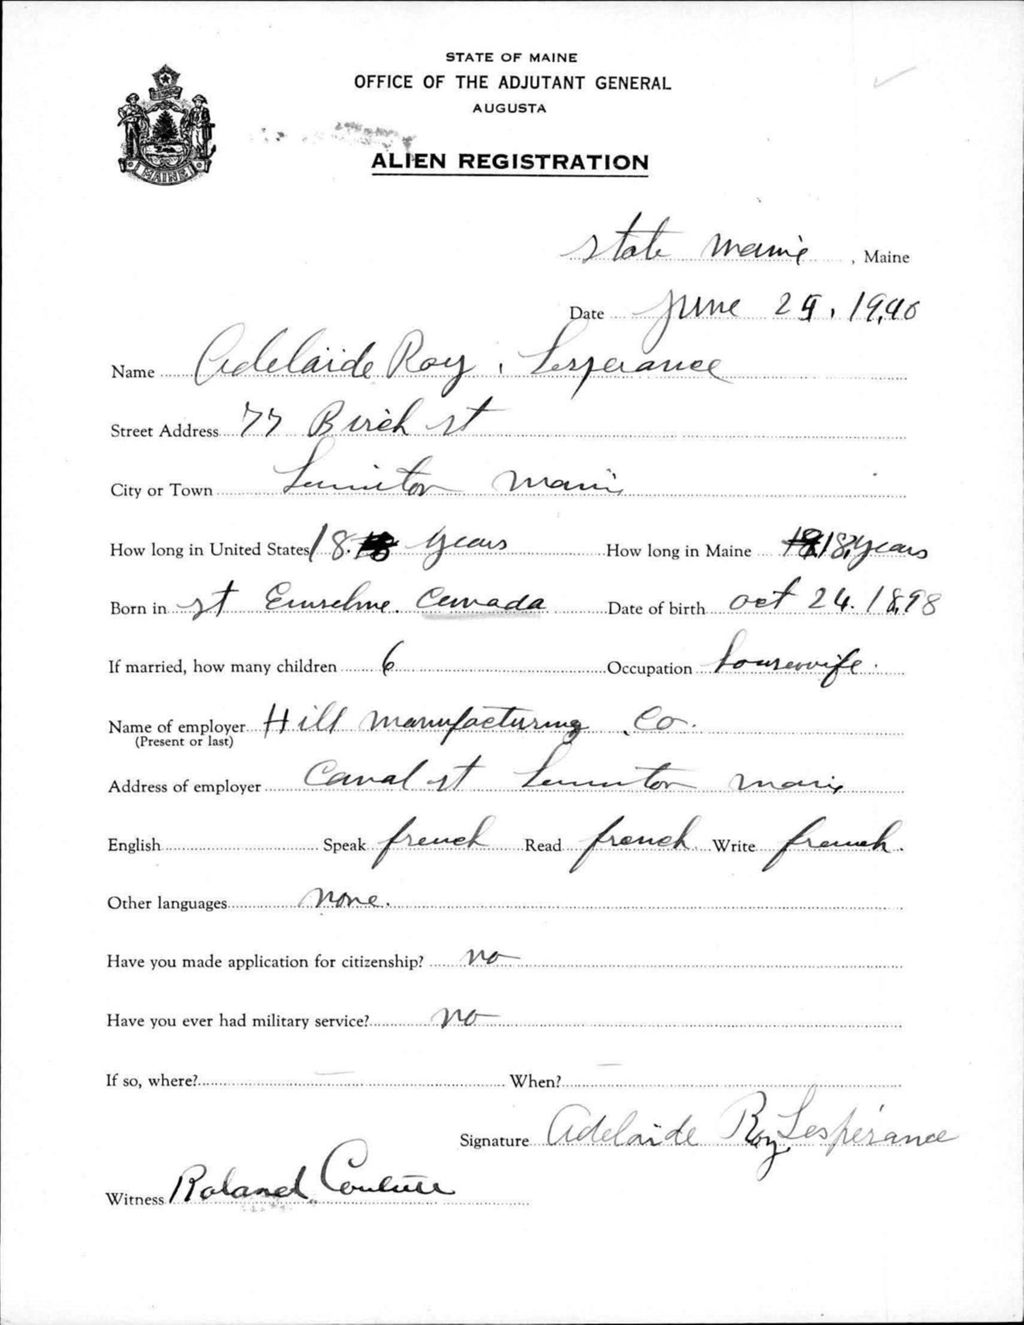 STATE OF MAINE
OFFICE OF THE ADJUTANT GENERAL
AUGUSTA
ALIEN REGISTRATION
MAINE
State Maine, Maine
Date June 29, 1940
Name Adelaide Roy, Lesperance
Street Address 77 Birch st
City or Town Lewiston Maine
How long in United States 18. years How long in Maine 18, years
Born in st Canada Date of birth oct 24. 1898
If married, how many children 6 Occupation housewife.
Name of employer Hill manufacturing Co.
(Present or last)
Address of employer Canal st Lewiston Maine
English Speak french Read french Write french.
Other languages none.
Have you made application for citizenship? no
Have you ever had military service? no
If so, where? — When? —
Signature Adelaide Roy Lespérance
Witness Roland Couture